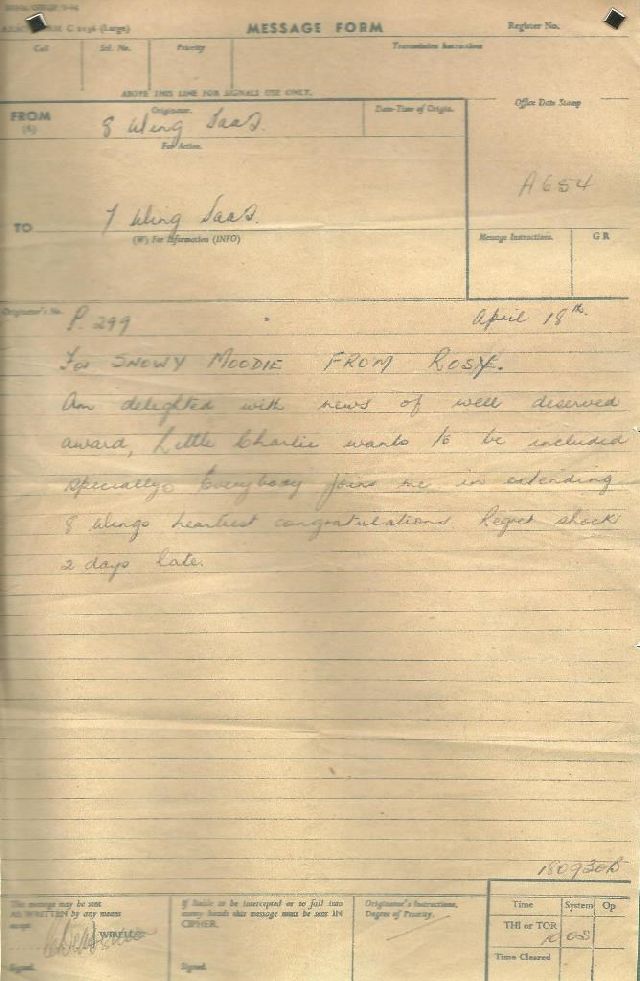 MESSAGE FORM
Register No.
C 2136 (Large)
Call
Ser. No.
Priority
Transmission Instructions
ABOVE THIS LINE FOR SIGNALS USE ONLY.
FROM
(A)
Originator.
Date-Time of Origin.
Office Date Stamp
8 Wing Saaf.
For Action.
A654
TO
7 Wing Saaf.
(W) For Information (INFO)
Message Instructions.
GR
Originator's No.
P. 299
April 18th.
For SNOWY MOODIE FROM ROSY.
Am delighted with news of well deserved
award, Little Charlie wants to be included
specially. Everybody joins me in extending
8 Wings heartiest congratulations. Regret shock
2 days late.
180930B
This message may be sent
AS WRITTEN by any means
except
WIRELESS
Signed
If liable to be intercepted or to fall into
enemy hands this message must be sent IN
CIPHER.
Signed
Originator's Instructions,
Degree of Priority.
Time
System
Op
THI or TCR
Time Cleared